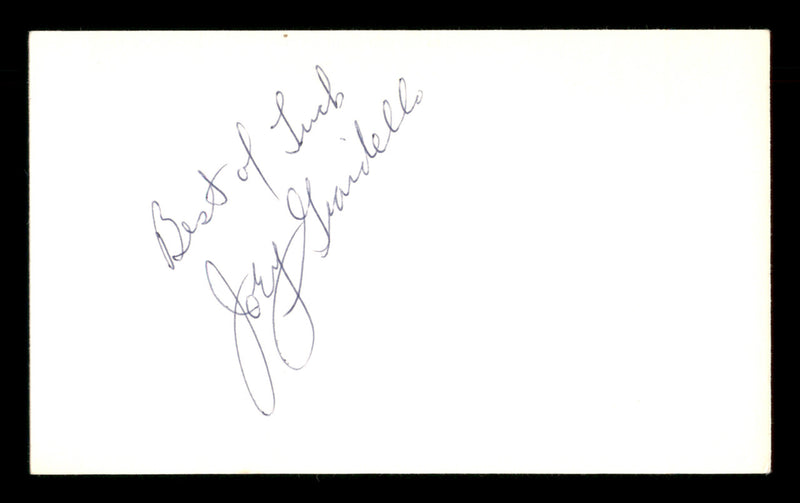 Best of Luck
Joey Giardello